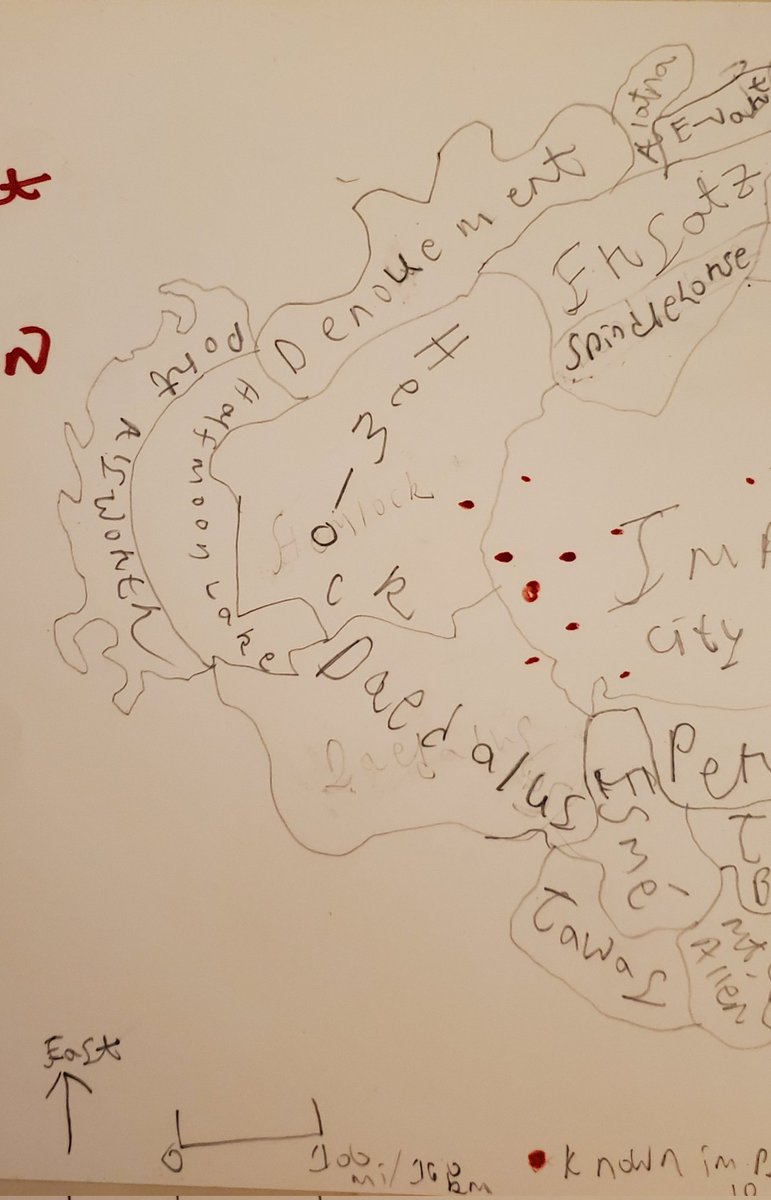 Alatna
E-Vau
Denouement
Ersatz
Spindlehorse
Port
Aitworth
Halfmoon Lake
Hemlock
Hemlock
Imp
City
Daedalus
Daedalus
Esmé
Per
t
B
Tawas
Mt.
Allen
East
0
100
mi/160
km
Known imp